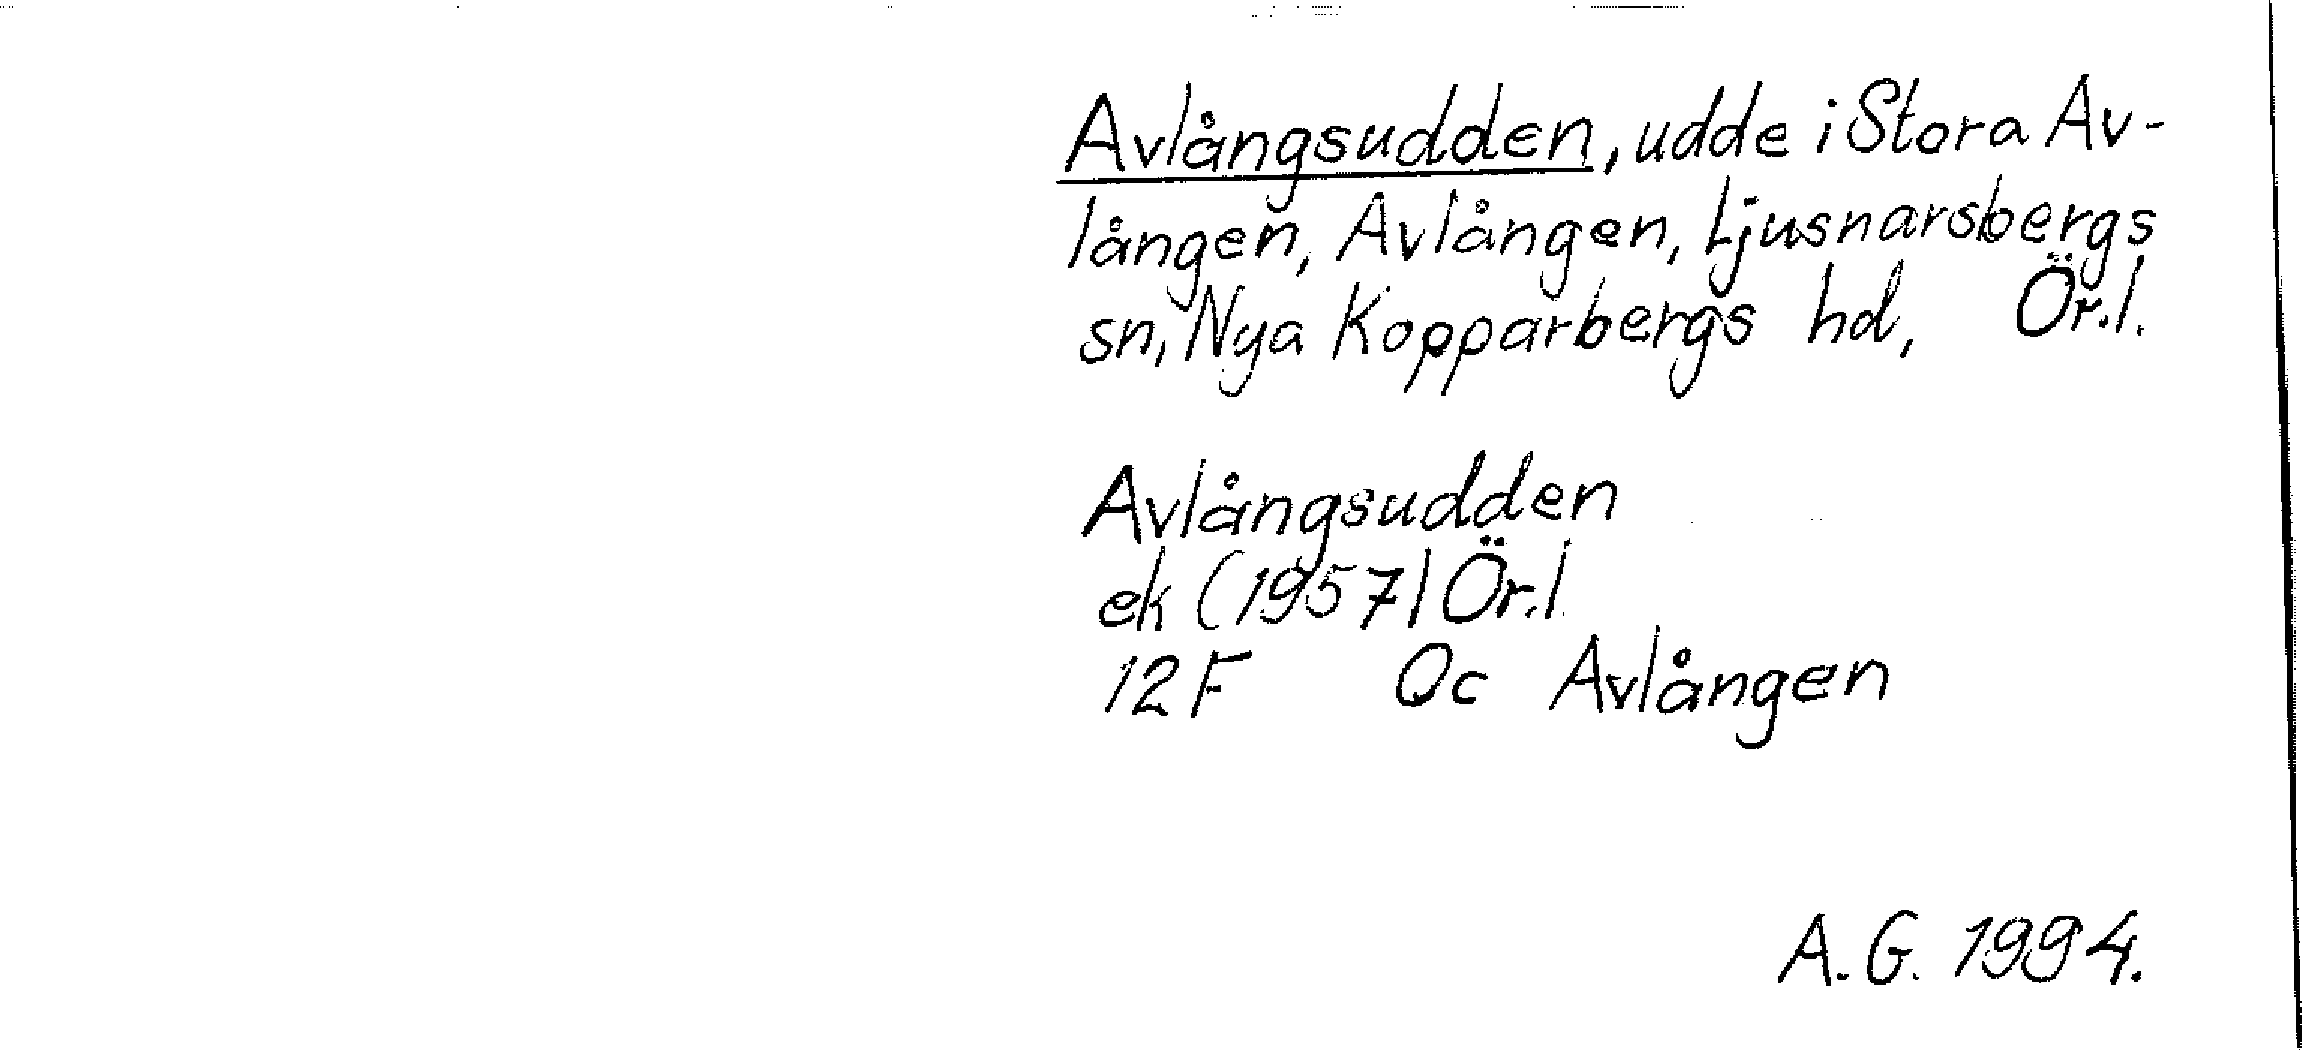 Avlångsudden, udde i Stora Av-
lången, Avlången, Ljusnarsbergs
sn, Nya Kopparbergs hd, Ör.l.
Avlångsudden
ek (1957) Ör.l.
12F 0c Avlången
A.G. 1994.